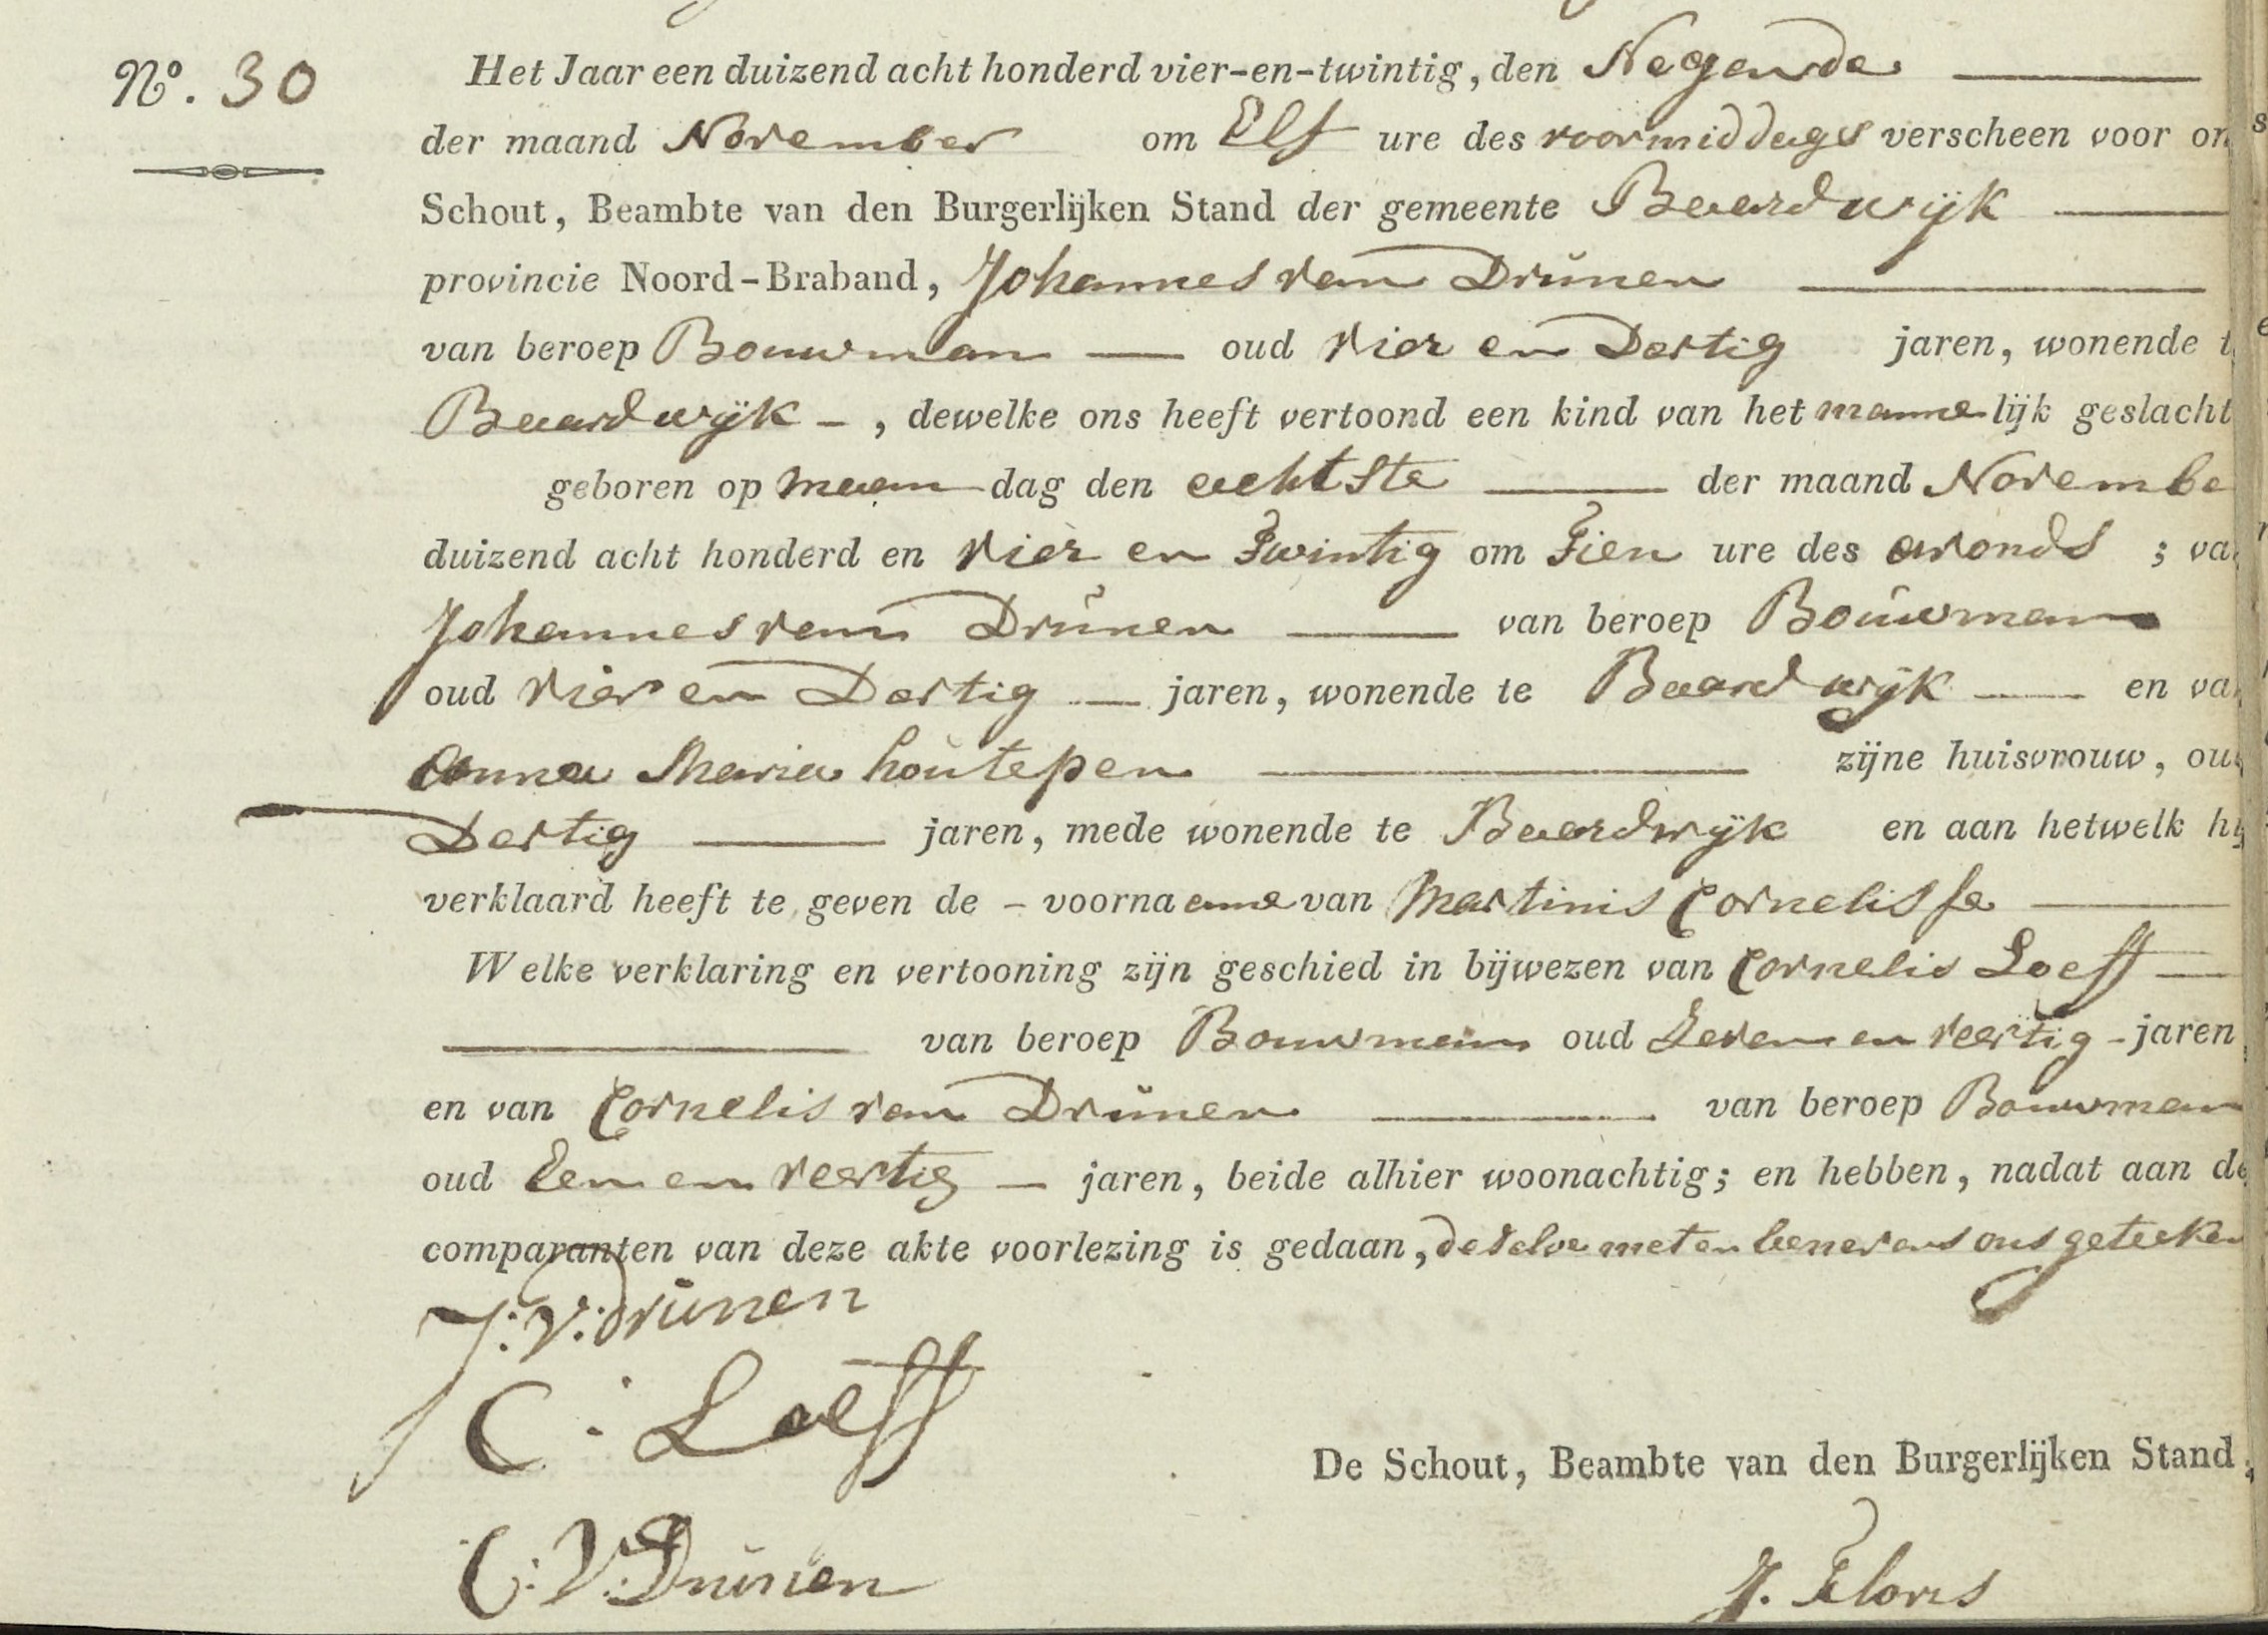 Nº. 30
Het Jaar een duizend acht honderd vier-en-twintig, den Negende
der maand November om Elf ure des voormiddags verscheen voor on
Schout, Beambte van den Burgerlijken Stand der gemeente Baardwijk
provincie Noord-Braband, Johannes van Drunen
van beroep Bouwman oud vier en Dertig jaren, wonende t
Baardwijk - , dewelke ons heeft vertoond een kind van het mannelijk geslacht
geboren op maandag den achtste der maand Novembe
duizend acht honderd en vier en Twintig om Tien ure des avonds ; va
Johannes van Drunen van beroep Bouwman
oud vier en Dertig jaren, wonende te Baardwijk en va
Anna Maria houtepen zijne huisvrouw, ou
Dertig jaren, mede wonende te Baardwijk en aan hetwelk hij
verklaard heeft te geven de - voornaame van Martinis Cornelisse
Welke verklaring en vertooning zijn geschied in bijwezen van Cornelis Loeff
van beroep Bouwman oud Seven en veertig - jaren
en van Cornelis van Drunen van beroep Bouwman
oud Een en veertig - jaren, beide alhier woonachtig; en hebben, nadat aan de
comparanten van deze akte voorlezing is gedaan, deselve met en benevens ons geteeken
J: V: Drunen
C: Loeff
C: V: Drunen
De Schout, Beambte van den Burgerlijken Stand,
J. Floris